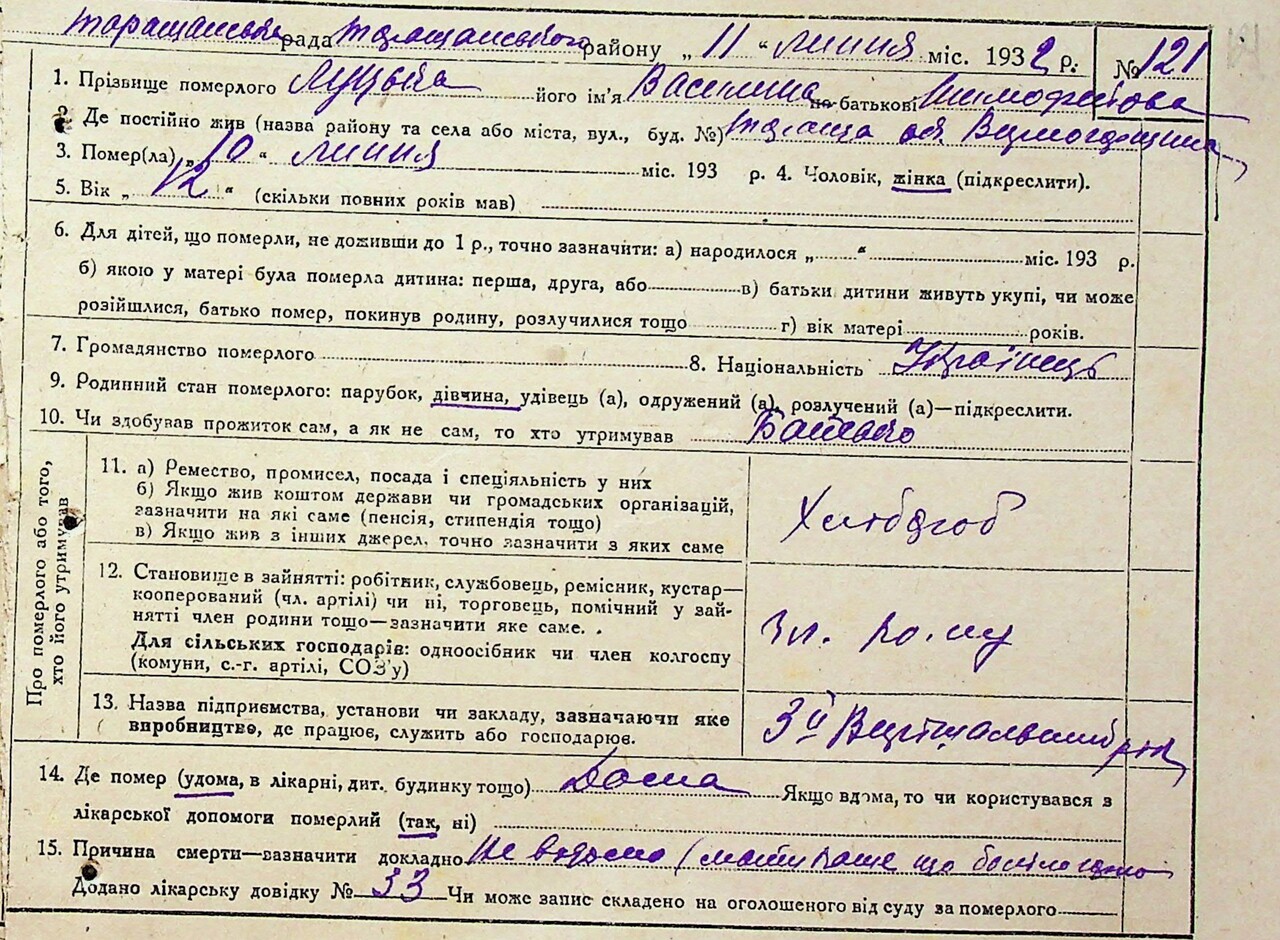 Таращанська рада Таращанського району „ 11 “ липня міс. 1932 р. № 121
1. Прізвище померлого його ім'я Василина по батькові Тимофейова
2. Де постійно жив (назва району та села або міста, вул., буд. №) Тараща
3. Помер(ла) „ 10 “ липня міс. 193 р. 4. Чоловік, жінка (підкреслити).
5. Вік „ 12 “ (скільки повних років мав)
6. Для дітей, що померли, не доживши до 1 р., точно зазначити: а) народилося „ “ міс. 193 р.
б) якою у матері була померла дитина: перша, друга, або в) батьки дитини живуть укупі, чи може
розійшлися, батько помер, покинув родину, розлучилися тощо г) вік матері років.
7. Громадянство померлого 8. Національність Українець
9. Родинний стан померлого: парубок, дівчина, удівець (а), одружений (а), розлучений (а)—підкреслити.
10. Чи здобував прожиток сам, а як не сам, то хто утримував Батько
Про померлого або того,
хто його утримував
11. а) Ремество, промисел, посада і спеціяльність у них
б) Якщо жив коштом держави чи громадських організацій,
зазначити на які саме (пенсія, стипендія тощо)
в) Якщо жив з інших джерел, точно зазначити з яких саме
Хлібороб
12. Становище в зайнятті: робітник, службовець, ремісник, кустар—
кооперований (чл. артілі) чи ні, торговець, помічний у зай-
нятті член родини тощо—зазначити яке саме.
Для сільських господарів: одноосібник чи член колгоспу
(комуни, с.-г. артілі, СОЗ'у)
13. Назва підприємства, установи чи закладу, зазначаючи яке
виробництво, де працює, служить або господарює.
14. Де помер (удома, в лікарні, дит. будинку тощо) Дома Якщо вдома, то чи користувався з
лікарської допомоги померлий (так, ні)
15. Причина смерти—зазначити докладно Не відомо (мати каже що боліло
Додано лікарську довідку № 33 Чи може запис складено на оголошеного від суду за померлого